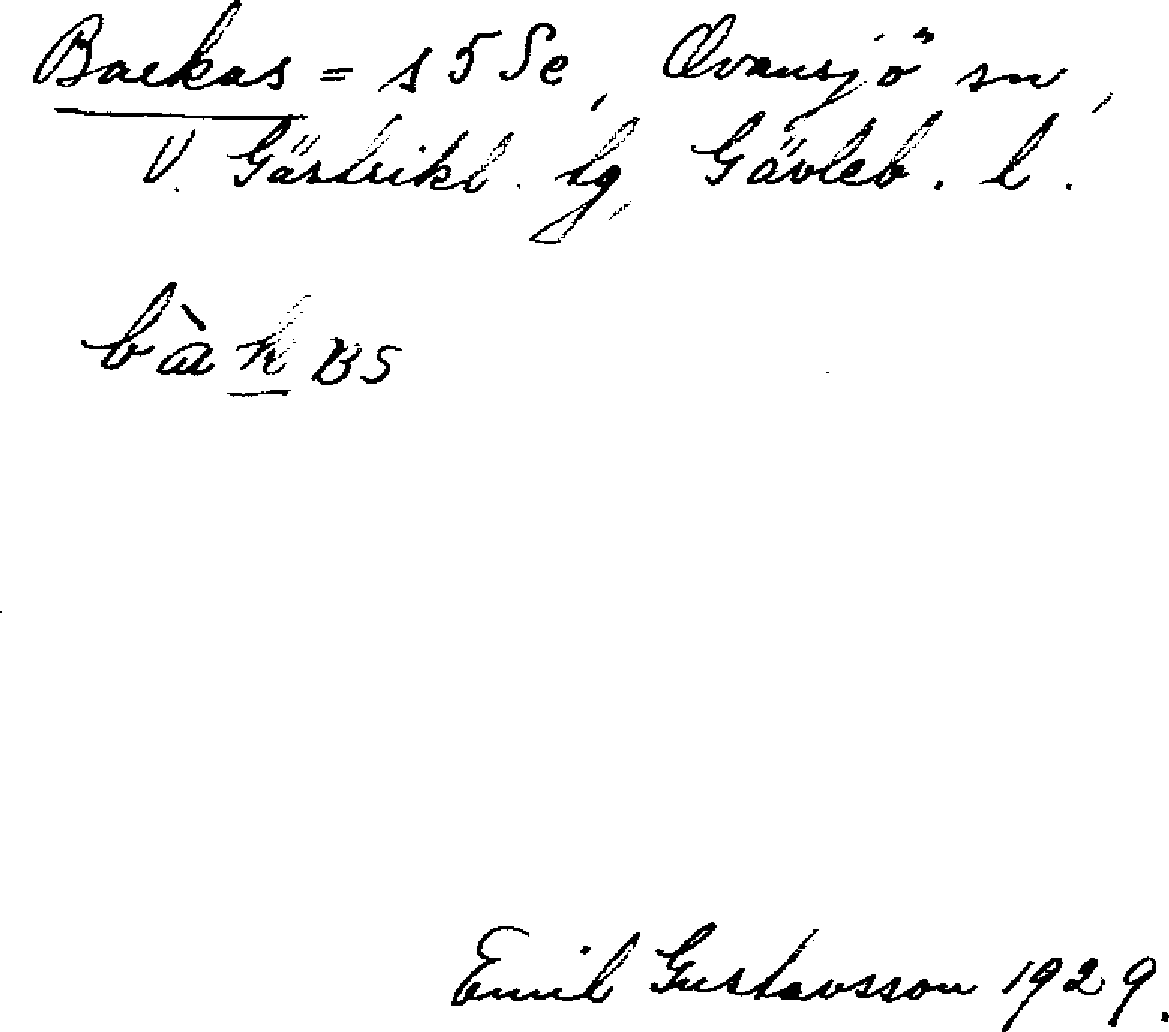 Backas = s 5 Se, Ovansjö sn,
V. Gästrikl. tg, Gävleb. l.
bàkas
Emil Gustavsson 1929.